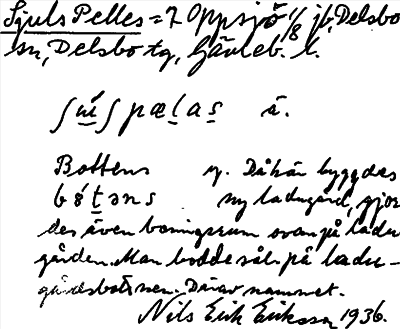 Sjuls Pelles = 7 Oppsjö 1/8 jb, Delsbo
sn, Delsbo tg, Gävleb. l.
ä.
Bottens y. Då här byggdes
ny ladugård, gjor
des även boningsrum ovanpå ladu
gården. Man bodde så på ladu-
gårdsbottnen. Därav namnet.
Nils Erik Eriksson 1936.